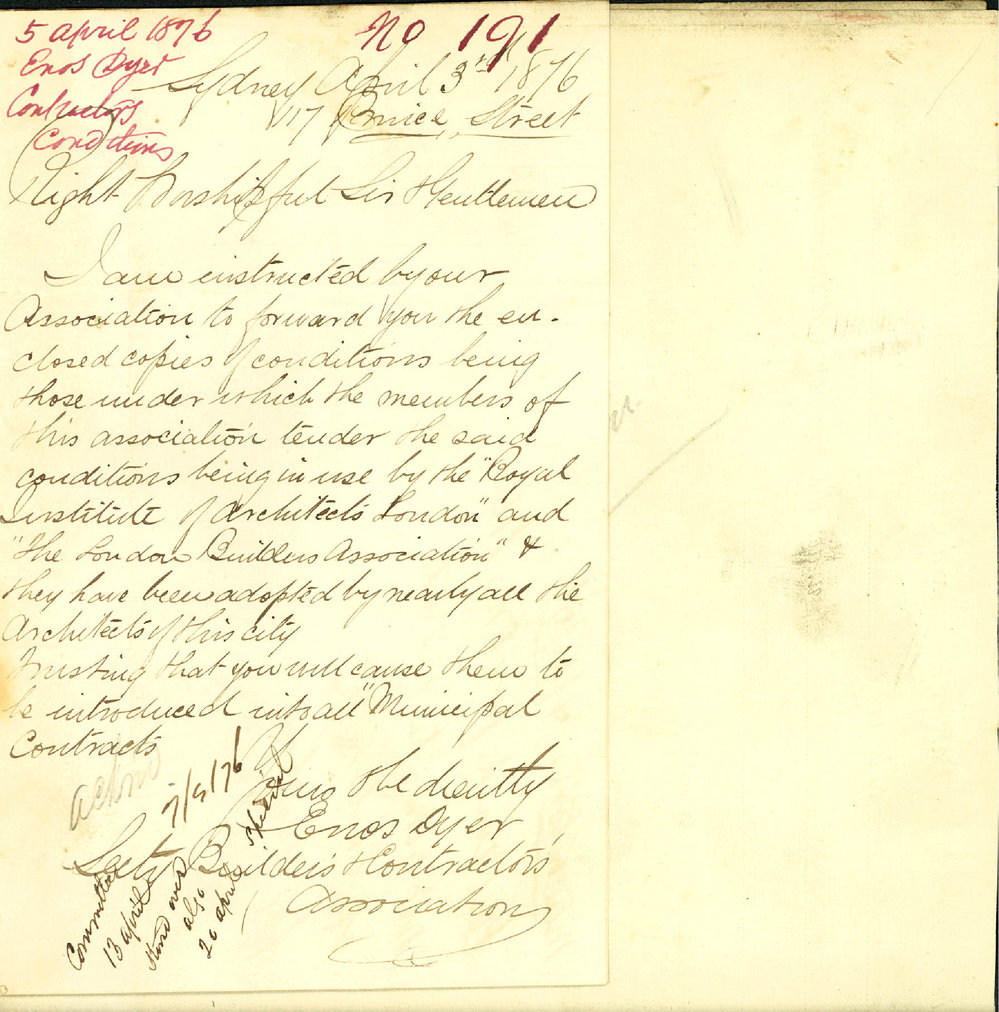 5 April 1876
No 191
Enos Dyer
Contractors
Conditions
Sydney April 3rd 1876
117 Prince Street
Right Worshipful Sir & Gentlemen
I am instructed by our
Association to forward you the en-
closed copies of conditions being
those under which the members of
this association tender the said
conditions being in use by the "Royal
Institute of Architects London" and
"The London Builders Association" &
they have been adopted by nearly all the
Architects of this city
Trusting that you will cause them to
be introduced into all "Municipal
Contracts
Yours Obediently
Enos Dyer
Secty Builders & Contractors
Association
Ackd
7/4/76
Committee
13 April
Stand over
also
20 April